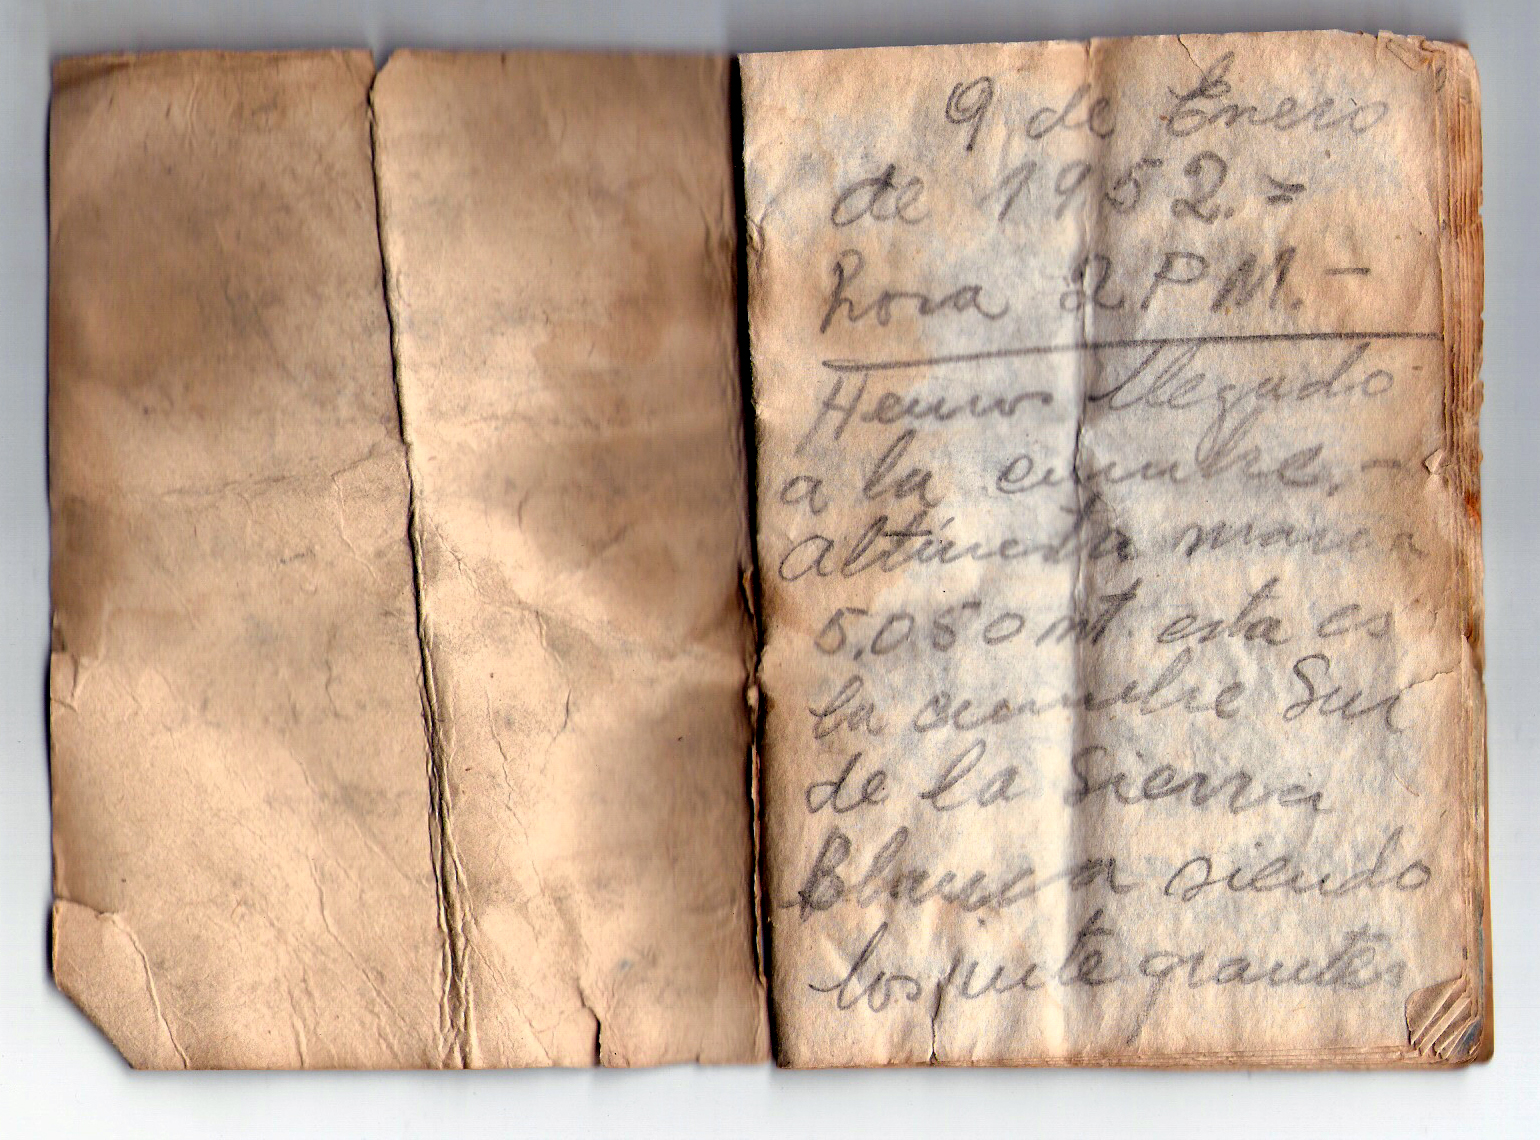 9 de Enero
de 1952.=
hora 2 PM.-
Hemos llegado
a la cumbre.-
altimetra marca
5.050 mt. esta es
la cumbre Sur
de la Sierra
Blanca siendo
los integrantes